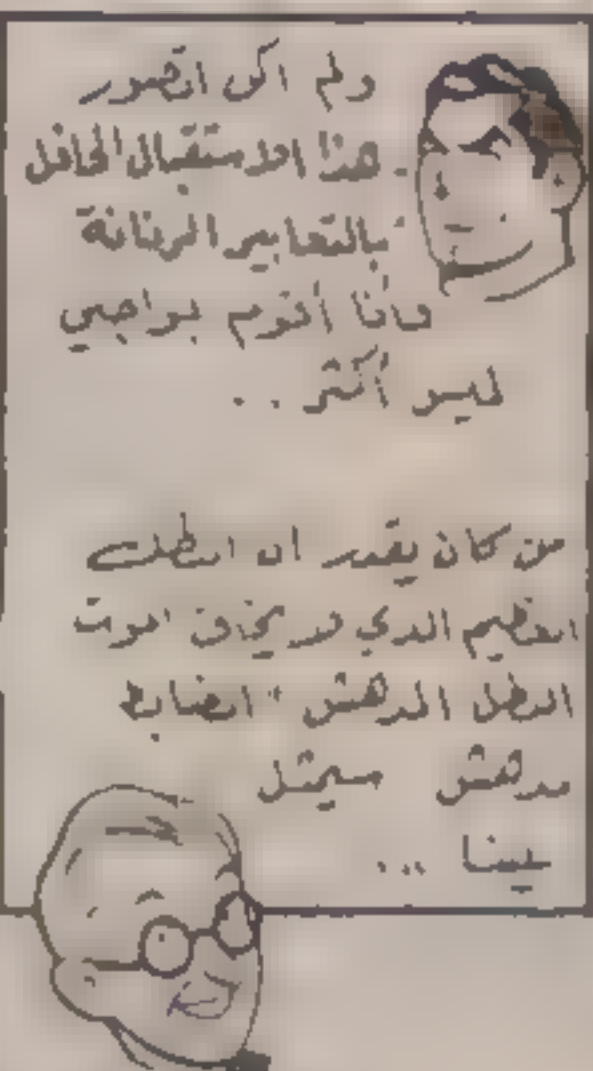 ولم اكن اتصور
هذا الاستقبال الحافل
بالتعابير الرنانة
وأنا أقوم بواجبي
ليس أكثر ..
من كان يقدر ان البطل
العظيم الذي لا يخاف الموت
البطل المدهش " الضابط
مدهش سيمثل
بيننا ...